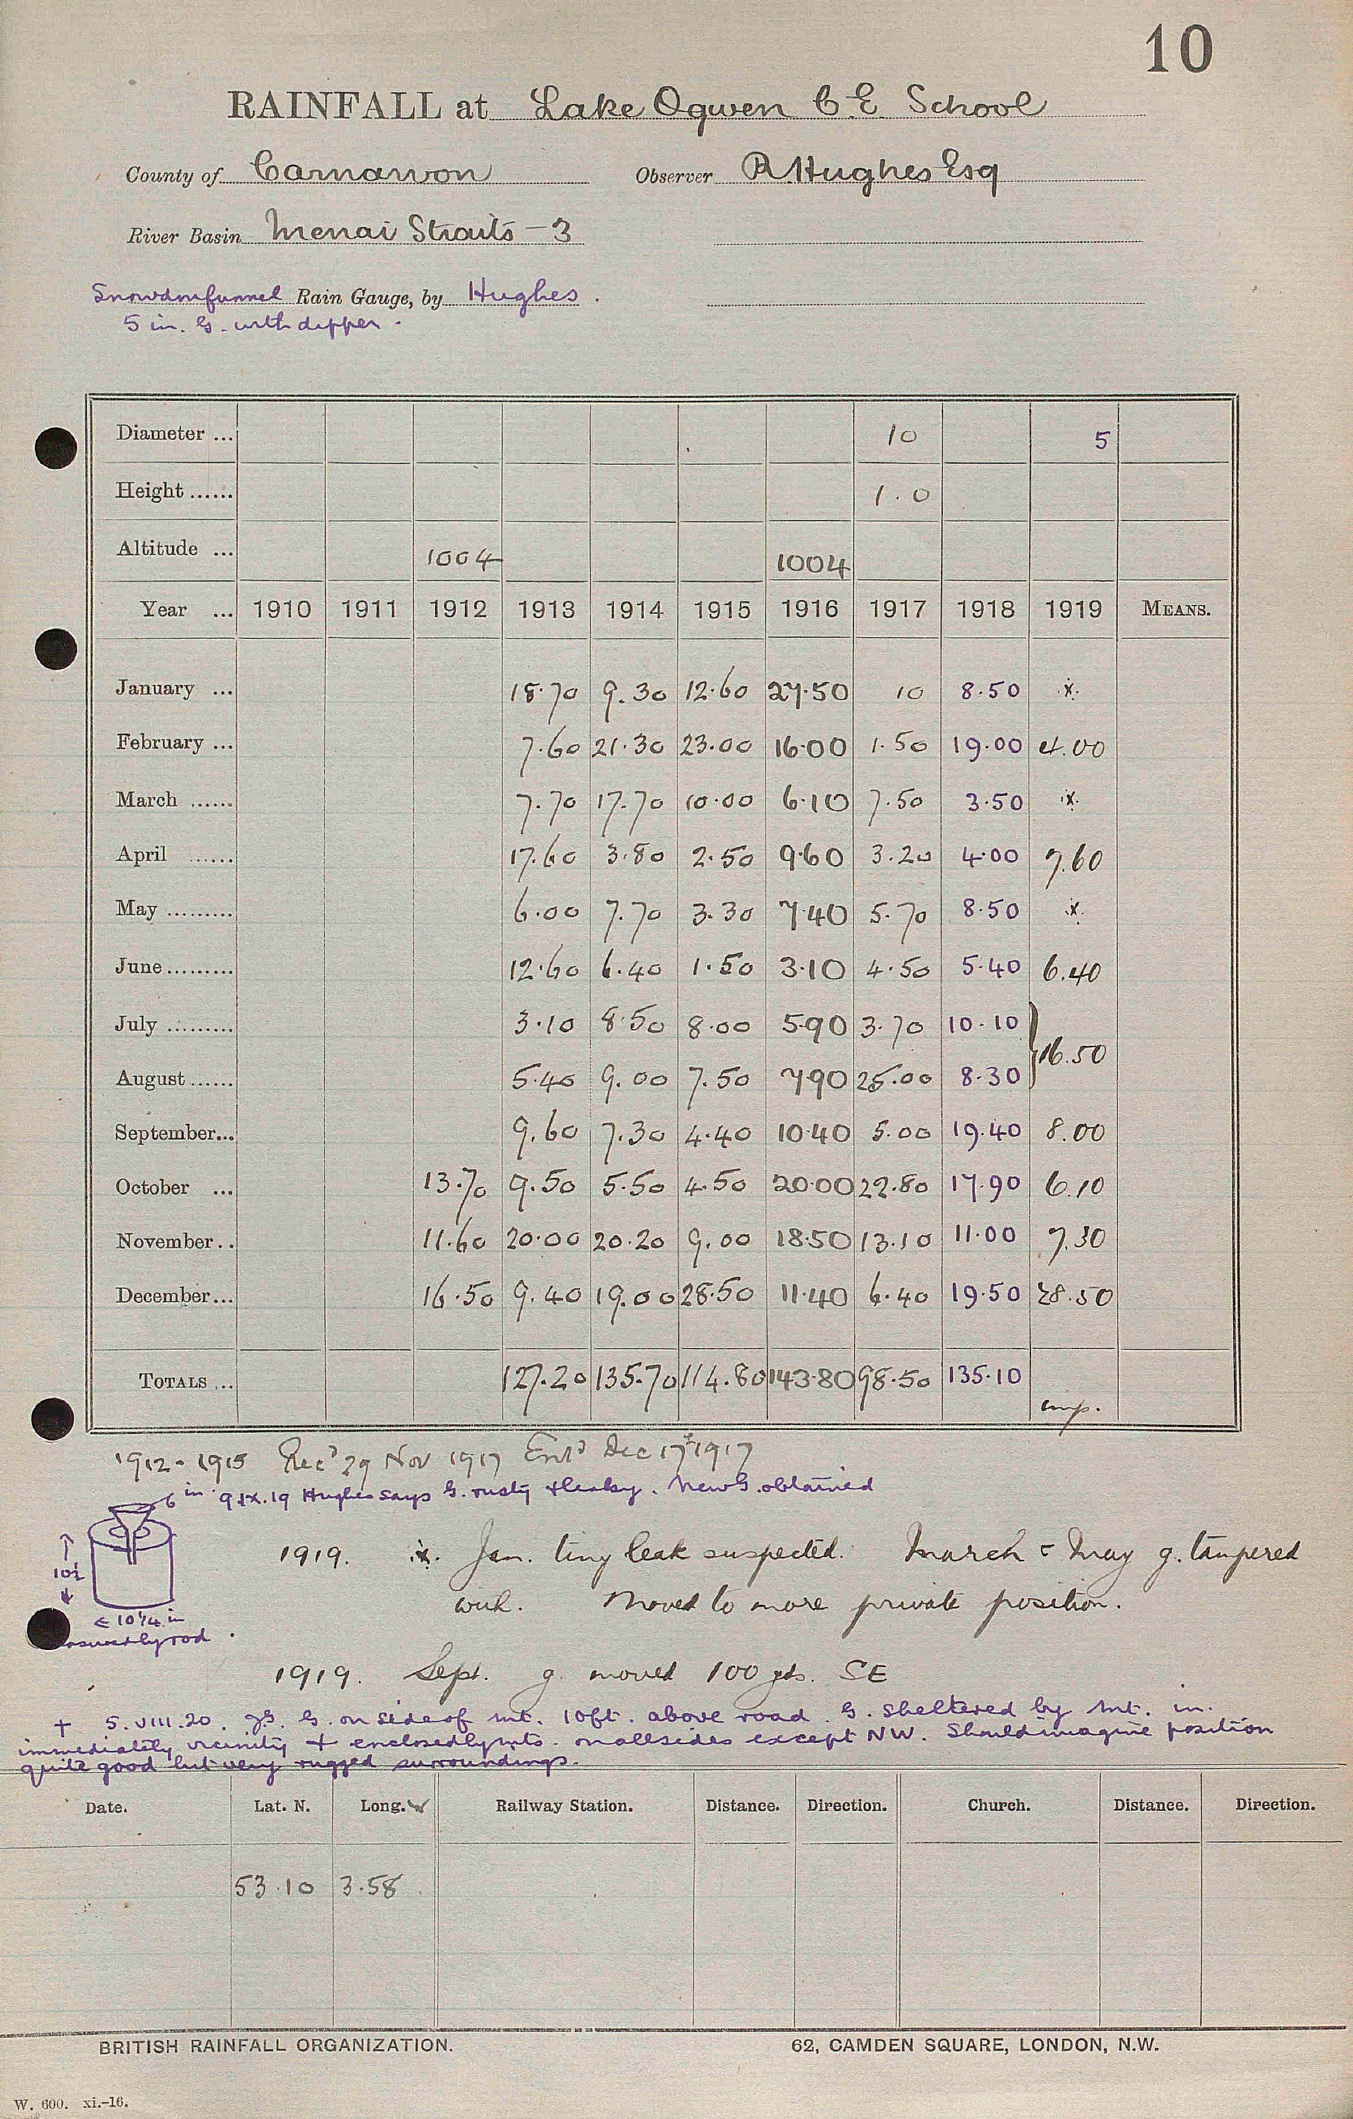 10
RAINFALL at Lake Ogwen C.E. School
County of Carnarvon Observer R Hughes Esq
River Basin Menai Straits - 3
Snowdon funnel Rain Gauge, by Hughes.
5 in. G. with dipper.
Diameter ... 10 5
Height ...... 1.0
Altitude ... 1004 1004
Year ... 1910 1911 1912 1913 1914 1915 1916 1917 1918 1919 MEANS.
January ... 18.70 9.30 12.60 27.50 10 8.50 x
February ... 7.60 21.30 23.00 16.00 1.50 19.00 4.00
March ...... 7.70 17.70 10.00 6.10 7.50 3.50 x
April ...... 17.60 3.80 2.50 9.60 3.20 4.00 7.60
May ......... 6.00 7.70 3.30 7.40 5.70 8.50 x
June ......... 12.60 6.40 1.50 3.10 4.50 5.40 6.40
July ......... 3.10 8.50 8.00 5.90 3.70 10.10
} 16.50
August ...... 5.40 9.00 7.50 7.90 25.00 8.30
September... 9.60 7.30 4.40 10.40 5.00 19.40 8.00
October ... 13.70 9.50 5.50 4.50 20.00 22.80 17.90 6.10
November .. 11.60 20.00 20.20 9.00 18.50 13.10 11.00 7.30
December... 16.50 9.40 19.00 28.50 11.40 6.40 19.50 28.50
TOTALS ... 127.20 135.70 114.80 143.80 98.50 135.10 imp.
1912-1915 Recd 29 Nov 1917 Entd Dec 17th 1917
6 in 9.IX.19 Hughes says G. rusty & leaky. New G. obtained
10½
← 10¼ in
measured by rod.
1919. x Jan. tiny leak suspected. March & May g. tampered
with. Moved to more private position.
1919. Sept. g. moved 100 yds. SE
+ 5.VIII.20. G. on side of mt. 10ft. above road. G. sheltered by mt. in
immediate vicinity + enclosed by mts. on all sides except NW. Should imagine position
quite good but very rugged surroundings.
Date. Lat. N. Long. W Railway Station. Distance. Direction. Church. Distance. Direction.
53.10 3.58
BRITISH RAINFALL ORGANIZATION. 62, CAMDEN SQUARE, LONDON, N.W.
W. 600. xi.-16.